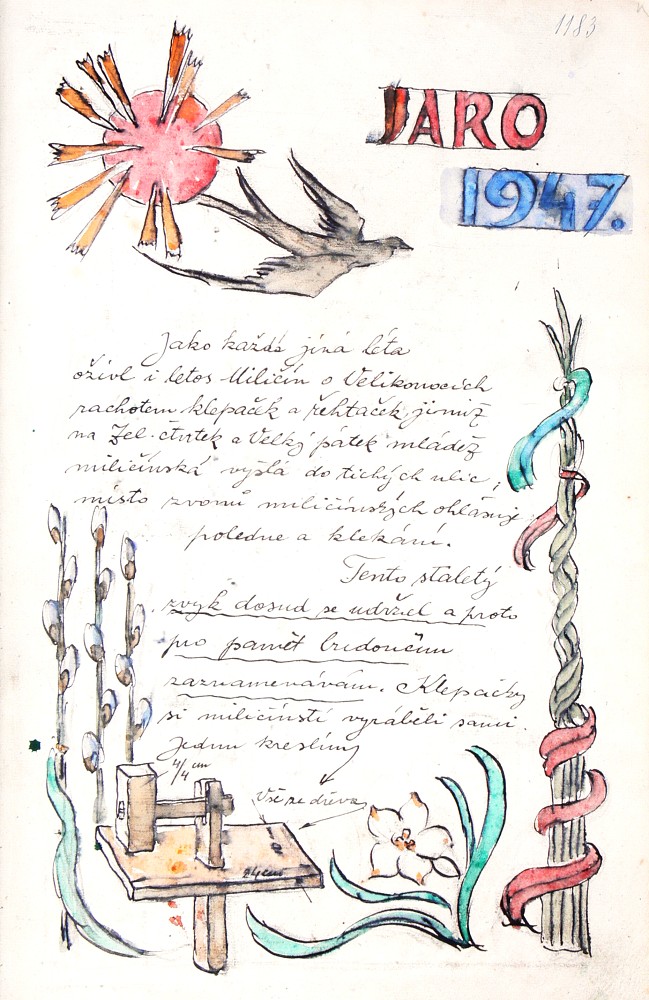 1183
JARO
1947.
Jako každá jiná léta
oživl i letos Miličín o Velikonocích
rachotem klepaček a řehtaček, jimiž
na Zel. čtvrtek a Velký pátek mládež
miličínská vyšlá do tichých ulic,
místo zvonů miličínských ohlašuje
poledne a klekání.
Tento staletý
zvyk dosud se udržel a proto
pro pamět budoucím
zaznamenávám. Klepačky
si miličínstí vyráběli sami.
Jednu kreslím
4/4 cm
Vše ze dřeva